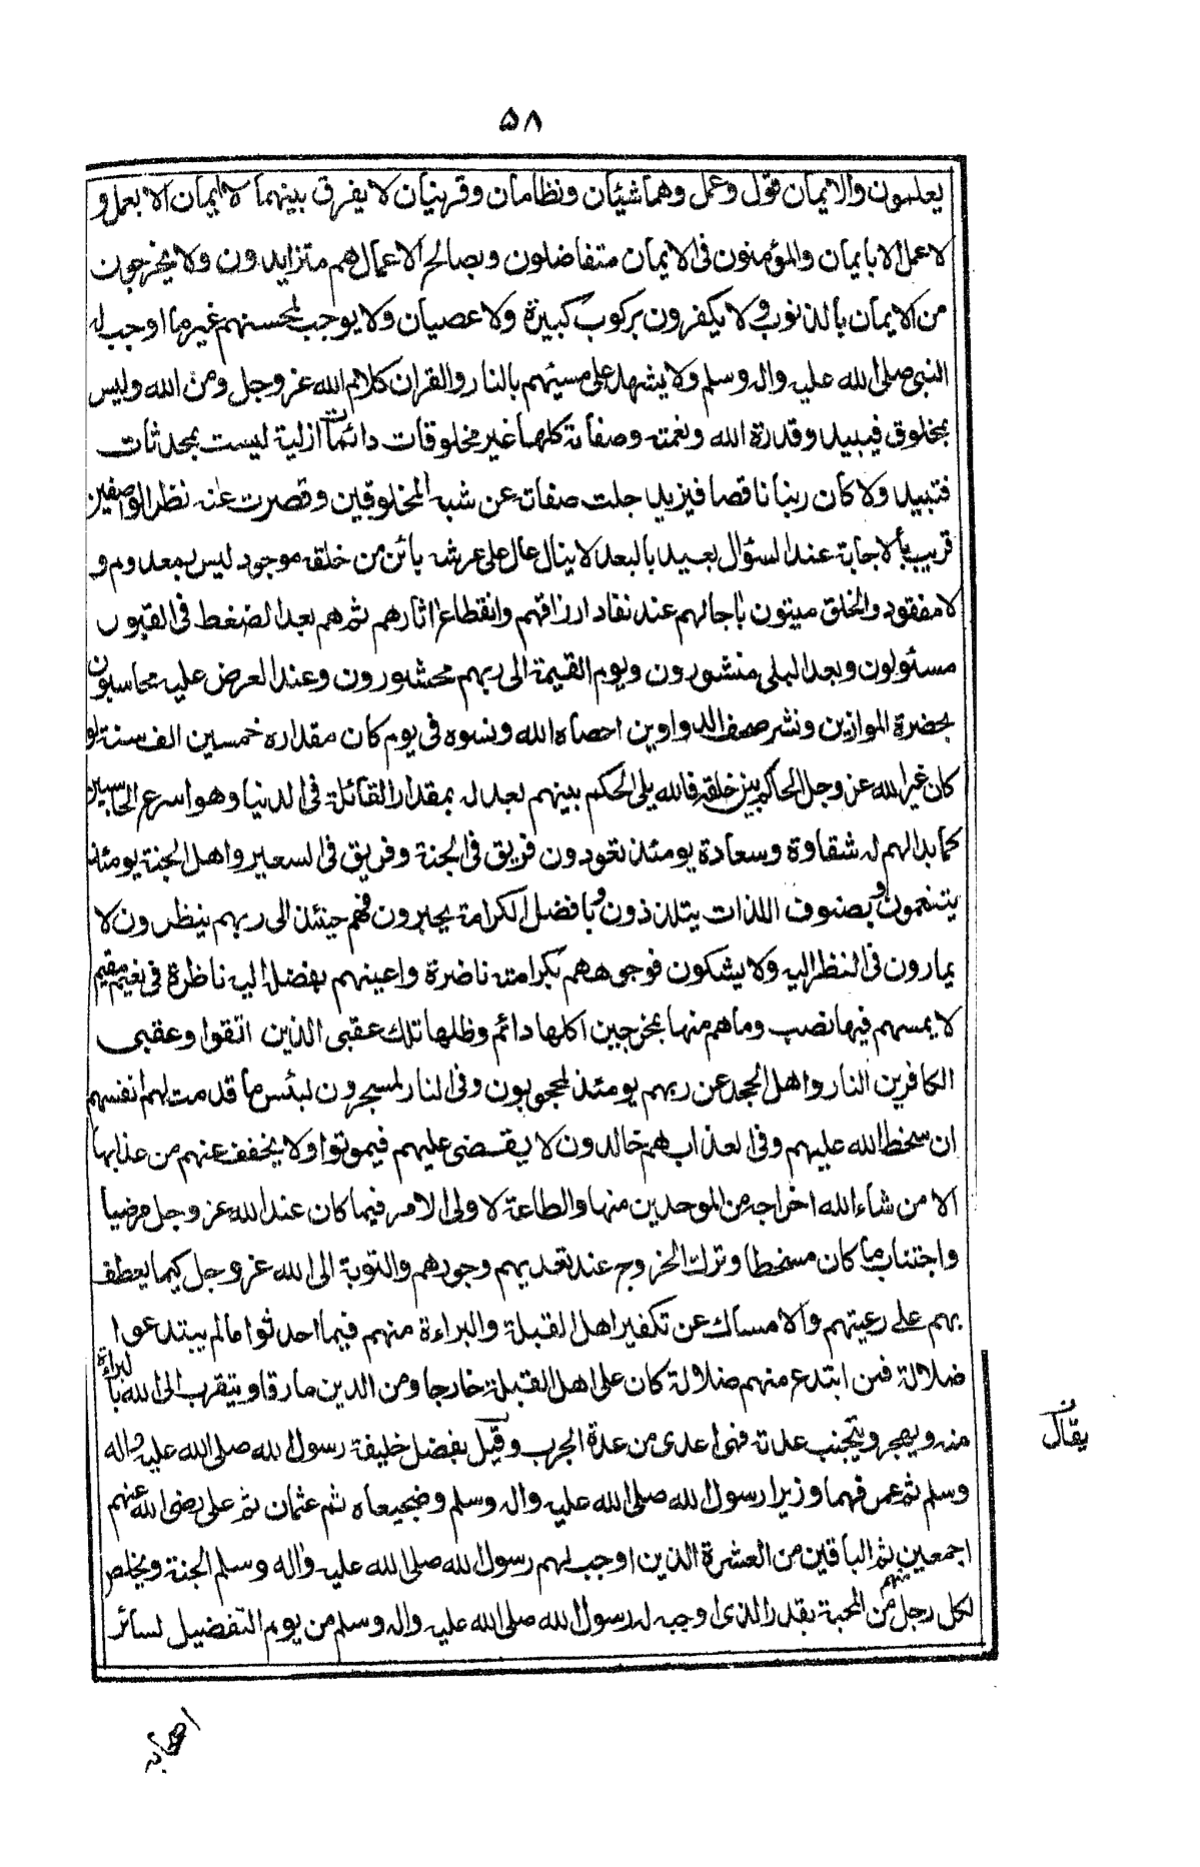 ۵۸
يعلمون والايمان قول وعمل وهما شيئان ونظامان وقرينان لا يفرق بينهما لا ايمان الا بعمل و
لا عمل الا بايمان والمؤمنون فى الايمان متفاضلون وبصالح الاعمال هم متزايدون ولا يخرجون
من الايمان بالذنوب ولا يكفرون بركوب كبيرة ولا عصيان ولا يوجب لمحسنهم غير ما اوجب له
النبى صلى الله عليه واله وسلم ولا يشهد على مسيئهم بالنار والقران كلام الله عز وجل ومن الله وليس
بمخلوق فيبيد وقدرة الله ونعمته وصفاته كلها غير مخلوقات دائمات ازلية ليست بمحدثات
فتبيد ولا كان ربنا ناقصا فيزيد جلت صفاته عن شبه المخلوقين وقصرت عنه نظر الواصفين
قريب بالاجابة عند السؤال بعيد بالبعد لا ينال عال على عرشه بائن من خلقه موجود ليس بمعدوم و
لا مفقود والخلق ميتون باجالهم عند نفاد ارزاقهم وانقطاع اثارهم ثم هم بعد الضغط فى القبور
مسئولون وبعد البلى منشورون ويوم القيمة الى ربهم محشورون وعند العرض عليه محاسبون
بحضرة الموازين ونشر صحف الدواوين احصاه الله ونسوه فى يوم كان مقداره خمسين الف سنة لو
كان غير الله عز وجل الحاكم بين خلقه فالله يلى الحكم بينهم بعدله بمقدار القائلة فى الدنيا وهو اسرع الحاسبين
كما بدالهم له شقاوة وسعادة يومئذ تعودون فريق فى الجنة وفريق فى السعير واهل الجنة يومئذ
يتنعمون وبصنوف اللذات يتلذذون وبافضل الكرامة يحبرون فهم حينئذ الى ربهم ينظرون لا
يمارون فى النظر اليه ولا يشكون فوجوههم بكرامته ناضرة واعينهم بفضله اليه ناظرة فى نعيم مقيم
لا يمسهم فيها نصب وما هم منها بمخرجين اكلها دائم وظلها تلك عقبى الذين اتقوا وعقبى
الكافرين النار واهل الجحد عن ربهم يومئذ لمحجوبون وفى النار لمسجرون لبئس ما قدمت لهم انفسهم
ان سخط الله عليهم وفى العذاب هم خالدون لا يقضى عليهم فيموتوا ولا يخفف عنهم من عذابها
الا من شاء الله اخراجه من الموحدين منها والطاعة لاولى الامر فيما كان عند الله عز وجل مرضيا
واجتناب ما كان مسخطا وترك الخروج عند تعديهم وجورهم والتوبة الى الله عز وجل كيما يعطف
بهم على رعيتهم والامساك عن تكفير اهل القبلة والبراءة منهم فيما احدثوا مالم يبتدعوا
ضلالة فمن ابتدع منهم ضلالة كان على اهل القبلة خارجا ومن الدين مارقا ويتقرب الى الله بالبراءة
منه ويهجر ويتجنب عدته فهى اعدى من عدة الجرب وقيل بفضل خليفة رسول الله صلى الله عليه واله
وسلم ثم عمر فهما وزيرا رسول الله صلى الله عليه واله وسلم وضجيعاه ثم عثمان ثم على رضى الله عنهم
اجمعين ثم الباقين من العشرة الذين اوجب لهم رسول الله صلى الله عليه واله وسلم الجنة ويخلص
لكل رجل منهم من المحبة بقدر الذى اوجبه له رسول الله صلى الله عليه واله وسلم من يوم التفضيل لسائر
يقال
اصحابه